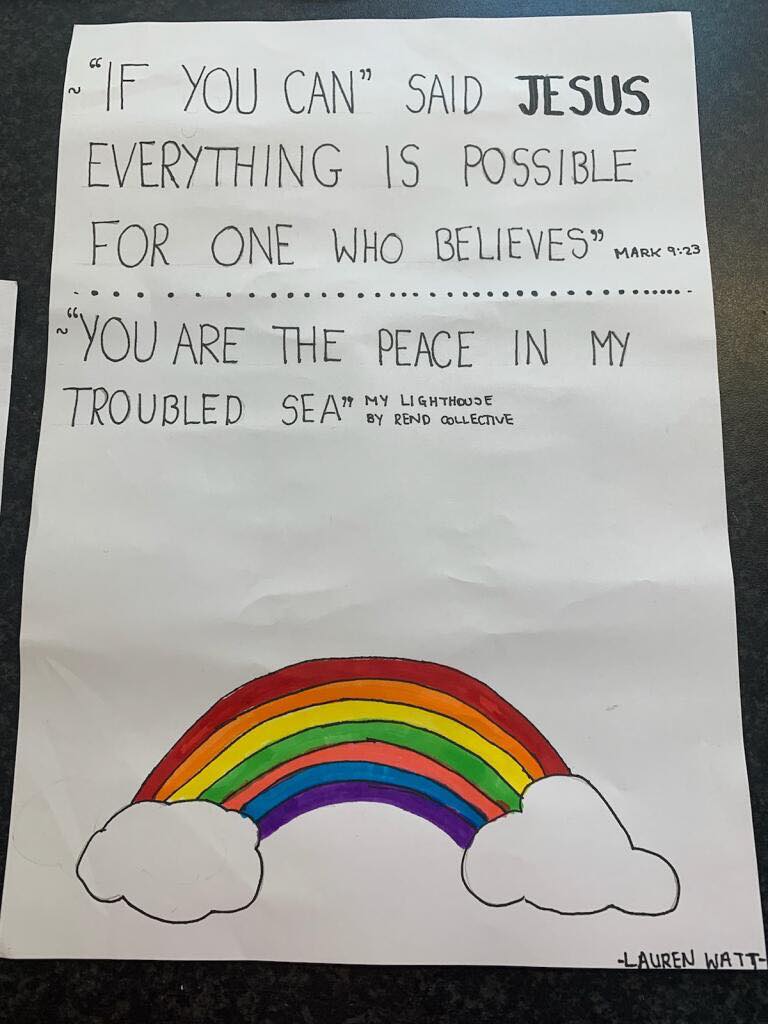 ~ "IF YOU CAN" SAID JESUS
EVERYTHING IS POSSIBLE
FOR ONE WHO BELIEVES" MARK 9:23
~ "YOU ARE THE PEACE IN MY
TROUBLED SEA" MY LIGHTHOUSE
BY REND COLLECTIVE
-LAUREN WATT-